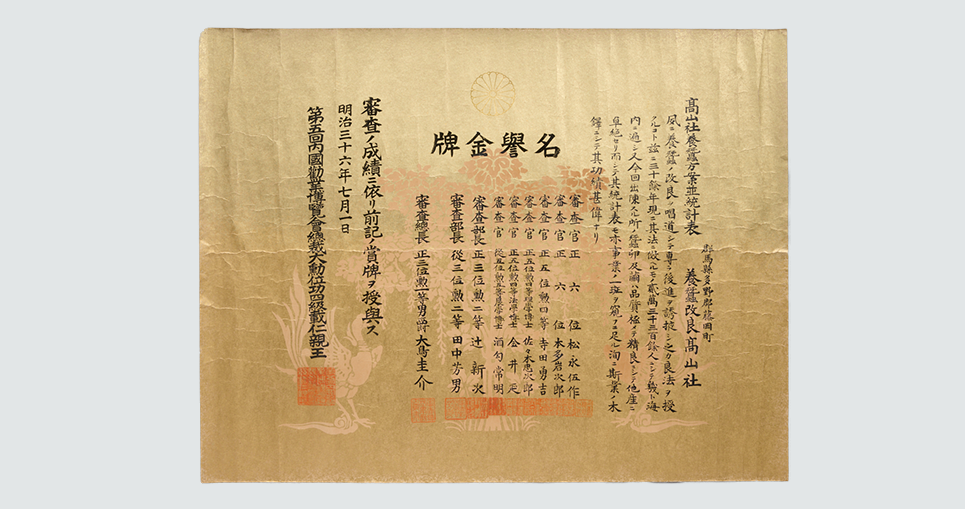 高山社養蠶方案並統計表
群馬縣多野郡藤岡町
養蠶改良高山社
夙ニ養蠶ノ改良ヲ唱道シテ専ラ後進ヲ誘掖シ之カ良法ヲ授
クルコト茲ニ三十餘年現ニ其法ニ倣フルモノ貳萬三千三百餘人ニシテ殆ト海
内ニ遍シ又今回出陳スル所ノ蠶卵及繭ハ品質極メテ精良ニシテ他産ニ
卓絶セリ而シテ其統計表モ亦事業ノ一斑ヲ窺フニ足ル洵ニ斯業ノ木
鐸ニシテ其功績甚偉ナリ
名譽金牌
審査官 正六位 松永伍作
審査官 正六位 本多岩次郎
審査官 正五位勲四等 寺田勇吉
審査官 正五位勲四等理學博士 佐々木忠次郎
審査官 正五位勲四等法學博士 金井延
審査官 從五位勲五等農學博士 酒匂常明
審査部長 正三位勲二等 辻新次
審査部長 從三位勲二等 田中芳男
審査總長 正三位勲一等男爵 大鳥圭介
審査ノ成績ニ依リ前記ノ賞牌ヲ授與ス
明治三十六年七月一日
第五回内國勸業博覽會總裁大勲位功四級載仁親王